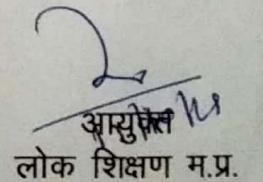 आयुक्त
लोक शिक्षण म.प्र.